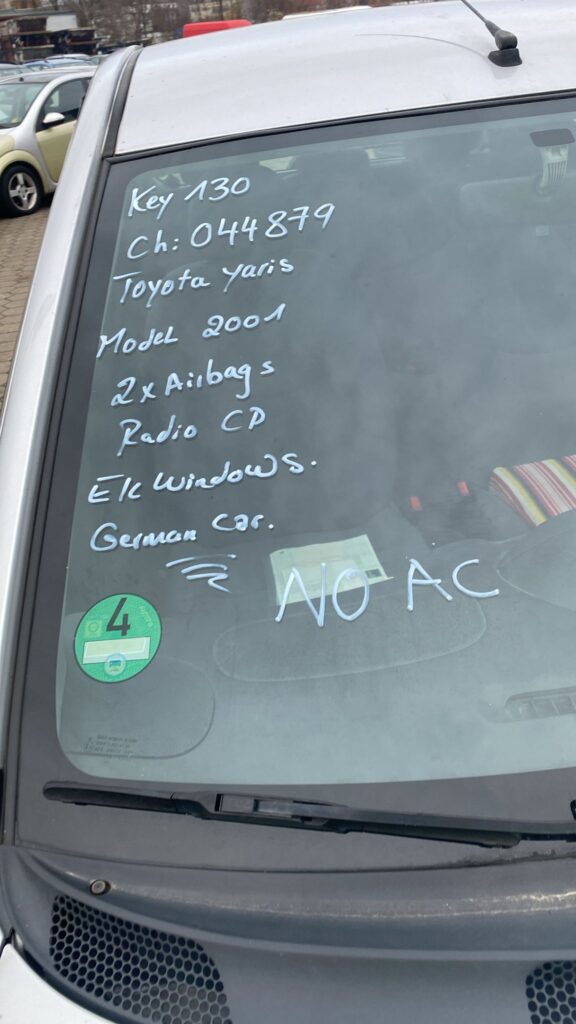 Key 130
Ch: 044879
Toyota yaris
Model 2001
2x Airbags
Radio CD
Elc windows.
German Car.
NO AC
4